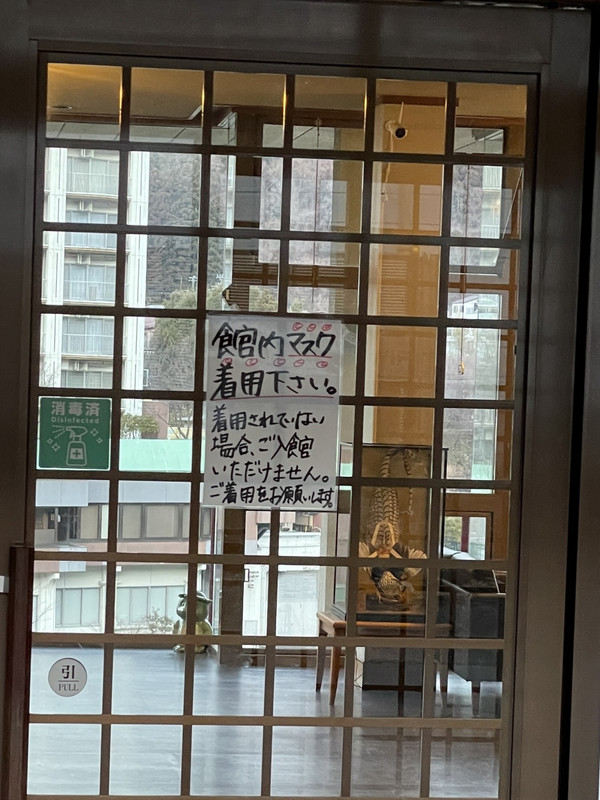 館内マスク
着用下さい。
着用されていない
場合、ご入館
いただけません。
ご着用をお願いします。
消毒済
Disinfected
引
PULL